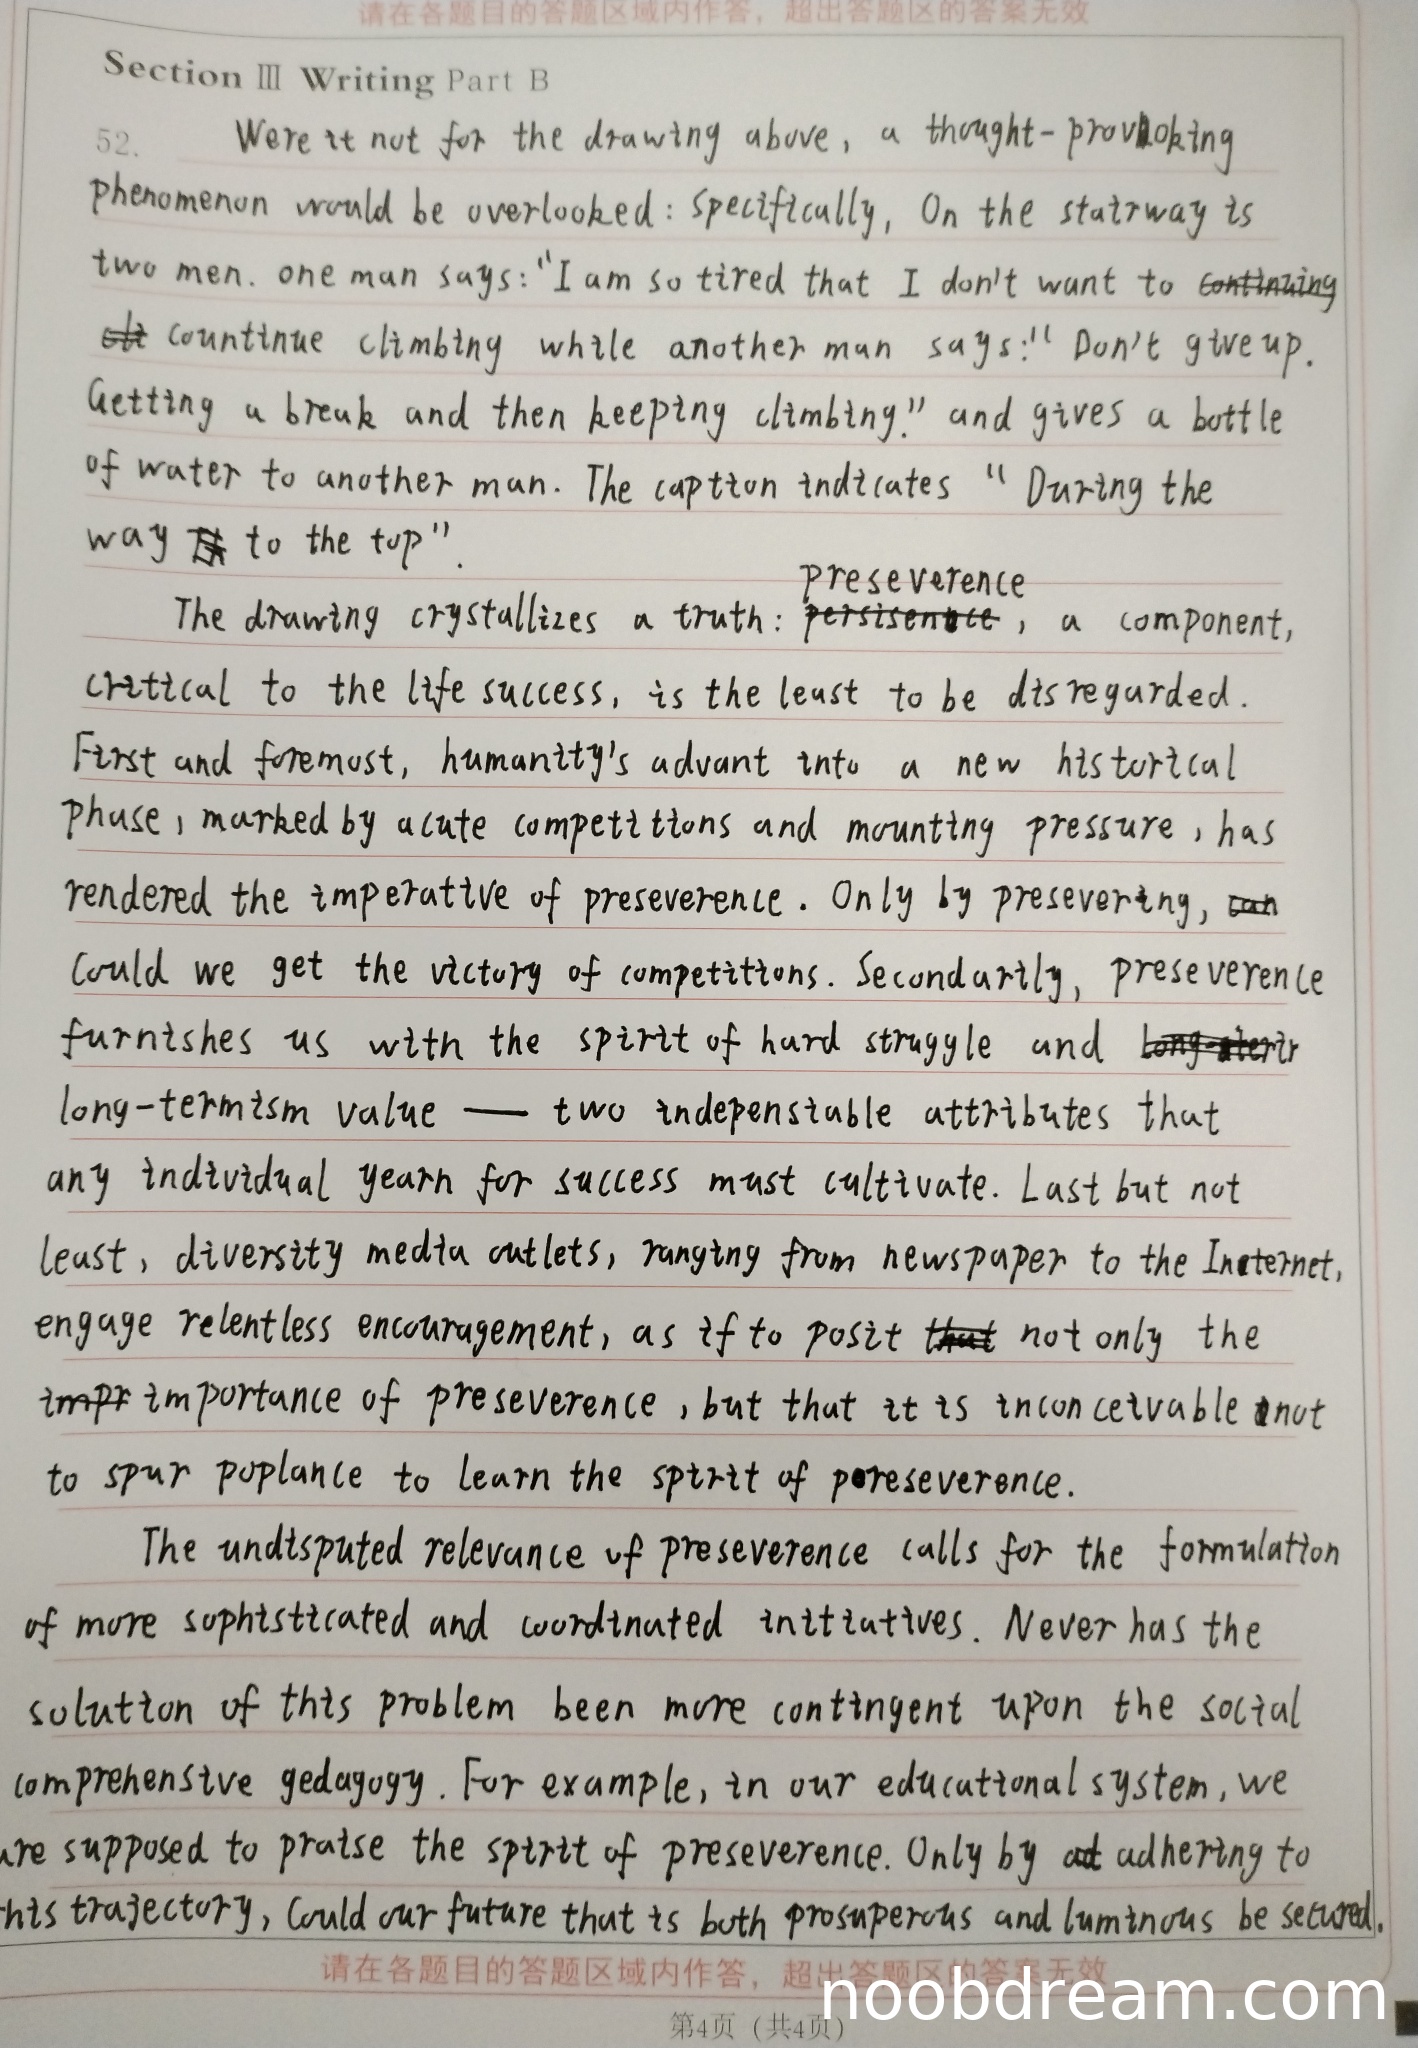 请在各题目的答题区域内作答，超出答题区的答案无效
Section Ⅲ Writing Part B
52. Were it not for the drawing above, a thought-provoking
phenomenon would be overlooked: Specifically, On the stairway is
two men. one man says:"I am so tired that I don't want to continuing
cli countinue climbing while another man says:" Don't give up.
Getting a break and then keeping climbing." and gives a bottle
of water to another man. The caption indicates " During the
way to the top".
preseverence
The drawing crystallizes a truth: persisentce, a component,
critical to the life success, is the least to be disregarded.
First and foremost, humanity's advant into a new historical
phase, marked by acute competitions and mounting pressure, has
rendered the imperative of preseverence. Only by presevering, can
Could we get the victory of competitions. Secondarily, preseverence
furnishes us with the spirit of hard struggle and
long-termism value — two indepensiable attributes that
any individual yearn for success must cultivate. Last but not
least, diversity media outlets, ranging from newspaper to the Internet,
engage relentless encouragement, as if to posit that not only the
impr importance of preseverence, but that it is inconceivable not
to spur poplance to learn the spirit of preseverence.
The undisputed relevance of preseverence calls for the formulation
of more sophisticated and coordinated initiatives. Never has the
solution of this problem been more contingent upon the social
comprehensive gedagogy. For example, in our educational system, we
are supposed to praise the spirit of preseverence. Only by ad adhering to
this trajectory, Could our future that is both prosuperous and luminous be secured.
请在各题目的答题区域内作答，超出答题区的答案无效
noobdream.com
第4页（共4页）